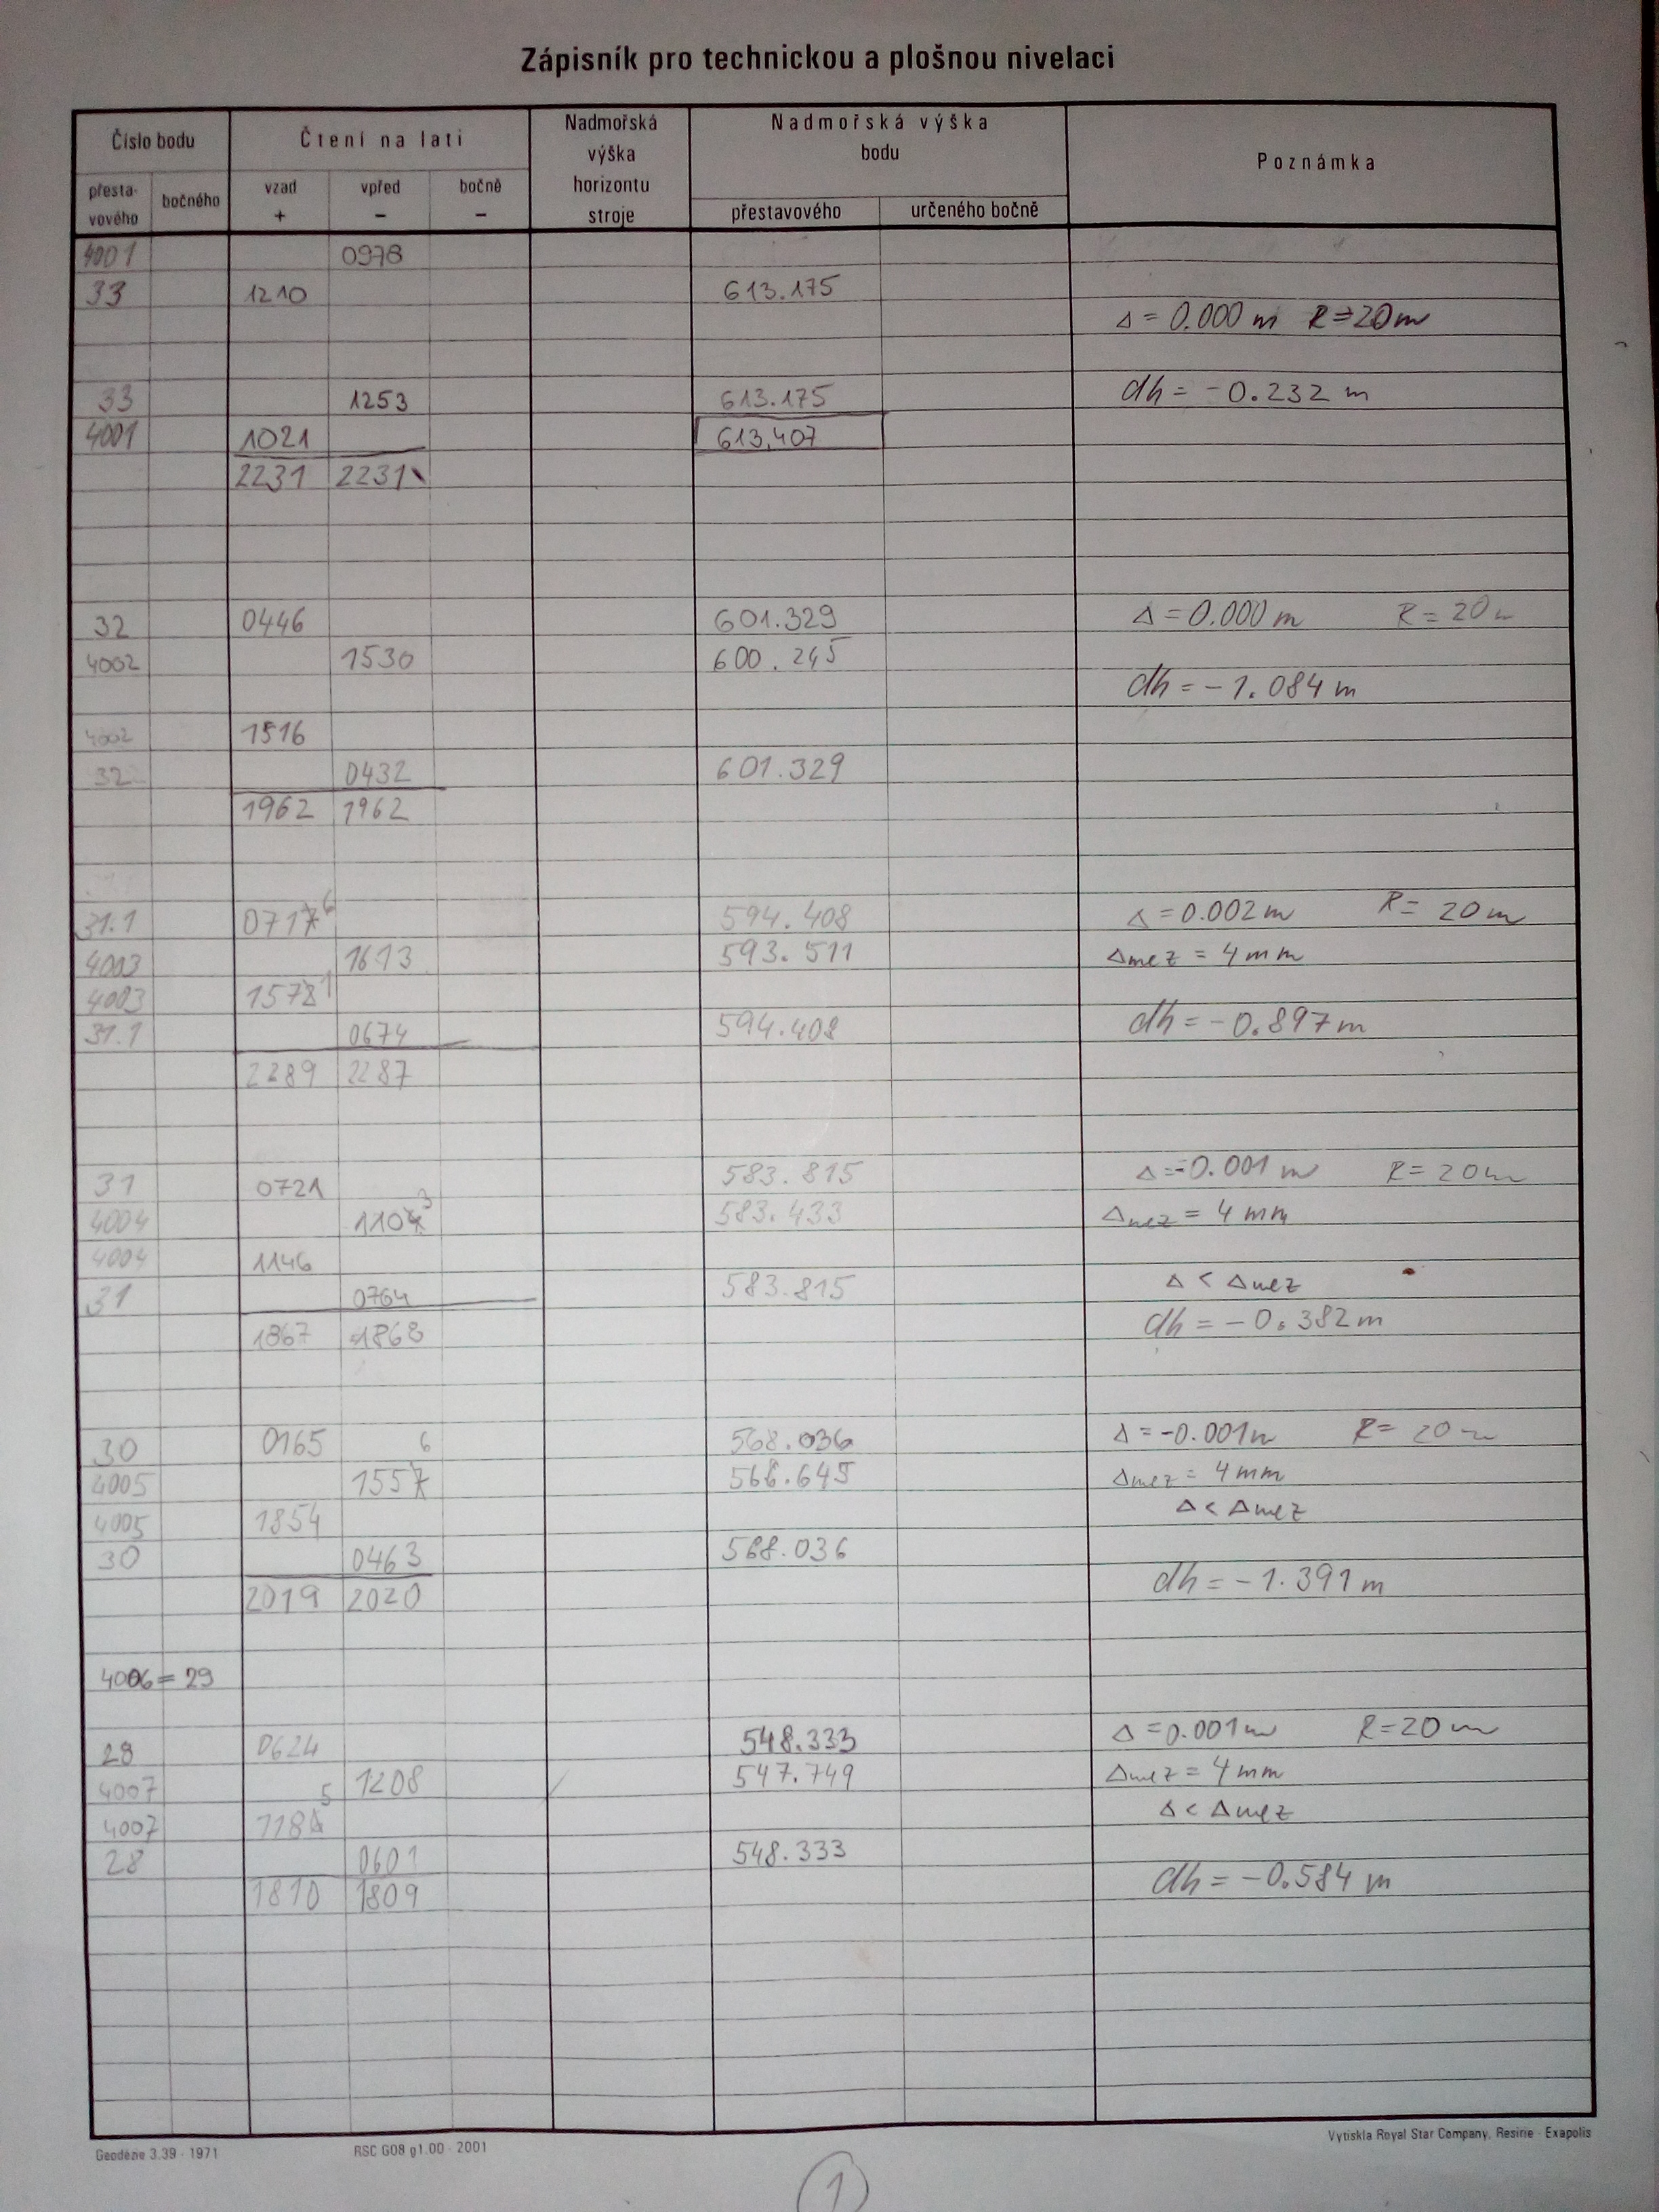 Zápisník pro technickou a plošnou nivelaci
Číslo bodu Čtení na lati Nadmořská výška horizontu stroje Nadmořská výška bodu Poznámka
přesta-vového bočného vzad + vpřed − bočně − přestavového určeného bočně
4001 0978
33 1210 613.175
Δ = 0.000 m R=20m
33 1253 613.175 dh = -0.232 m
4001 1021 613,407
2231 2231
32 0446 601.329 Δ = 0.000 m R = 20m
4002 1530 600.245
dh = -1.084 m
4002 1516
32 0432 601.329
1962 1962
31.1 0717 6 594.408 Δ = 0.002 m R = 20m
4003 1613 593.511 Δmez = 4 mm
4003 1572 1
31.1 0674 594.408 dh = -0.897 m
2289 2287
31 0721 583.815 Δ = -0.001 m R = 20m
4004 1104 3 583.433 Δmez = 4 mm
4004 1146
31 0764 583.815 Δ < Δmez
1867 1868 dh = -0.382 m
30 0165 6 568.036 Δ = -0.001m R = 20m
4005 1557 566.645 Δmez = 4 mm
4005 1854 Δ < Δmez
30 0463 568.036
2019 2020 dh = -1.391 m
4006 = 29
28 0624 548.333 Δ = 0.001 m R = 20 m
4007 1208 547.749 Δmez = 4 mm
4007 1184 5 Δ < Δmez
28 0601 548.333
1810 1809 dh = -0.584 m
Geodézie 3.39 - 1971 RSC G08 g1.00 - 2001 Vytiskla Royal Star Company, Resirie - Exapolis
1